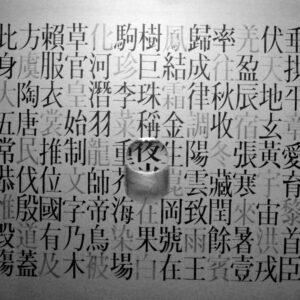 比方賴草化駒樹鳳歸率羌伏垂
身虞服官河珍巨結成往盈
大陶衣皇潛李珠霜律秋辰地平
五唐裳始羽菜稱金調收玄章
常民推制龍重夜生陽冬張黃愛
恭伐位文師芥崑雲藏寒宇育
惟殷國字帝海岡致閏來宙黎
毀道有乃鳥果號雨餘暑洪首
傷蓋此木被場白在王賓壹戎臣